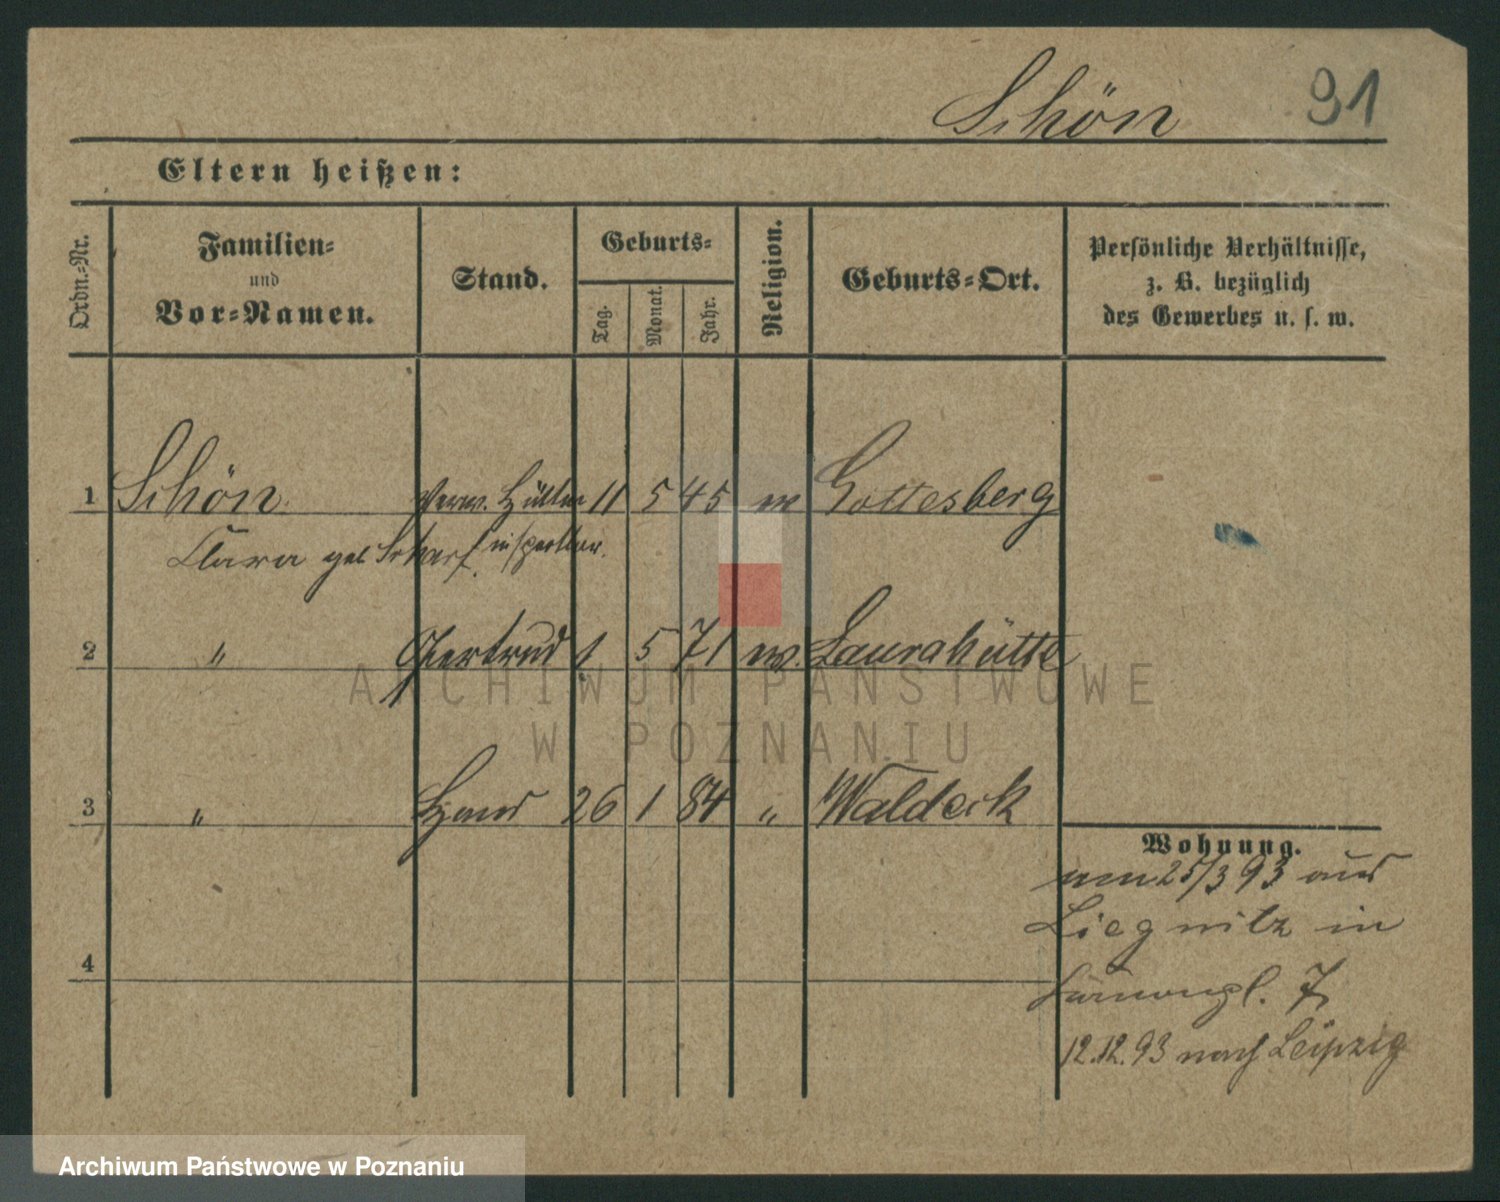 Schön 91
Eltern heißen:
Ordn.-Nr.
Familien-
und
Vor-Namen.
Stand.
Geburts-
Tag.
Monat.
Jahr.
Religion.
Geburts-Ort.
Persönliche Verhältnisse,
z. B. bezüglich
des Gewerbes u. s. w.
1 Schön verw. Hütten 11 5 45 Gottesberg
Clara geb Scharf inspektor.
2 " Gertrud 1 5 71 Laurahütte
3 " Hans 26 1 84 " Waldeck
4
Wohnung.
25/3 93 aus
Liegnitz in
7
12.12.93 nach Leipzig
ARCHIWUM PAŃSTWOWE
W POZNANIU
Archiwum Państwowe w Poznaniu